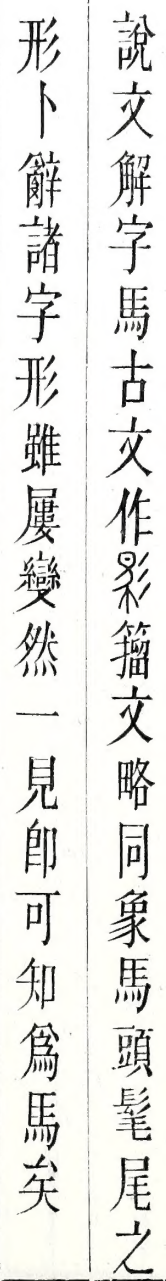 說文解字馬古文作𢒠籒文略同象馬頭髦尾之
形卜辭諸字形雖屢變然一見卽可知爲馬矣